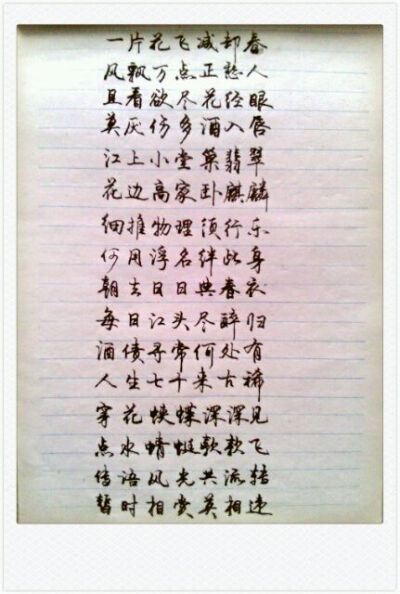 一片花飞减却春
风飘万点正愁人
且看欲尽花经眼
莫厌伤多酒入唇
江上小堂巢翡翠
花边高家卧麒麟
细推物理须行乐
何用浮名绊此身
朝去日日典春衣
每日江头尽醉归
酒债寻常何处有
人生七十来古稀
穿花蛱蝶深深见
点水蜻蜓款款飞
传语风光共流转
暂时相赏莫相违